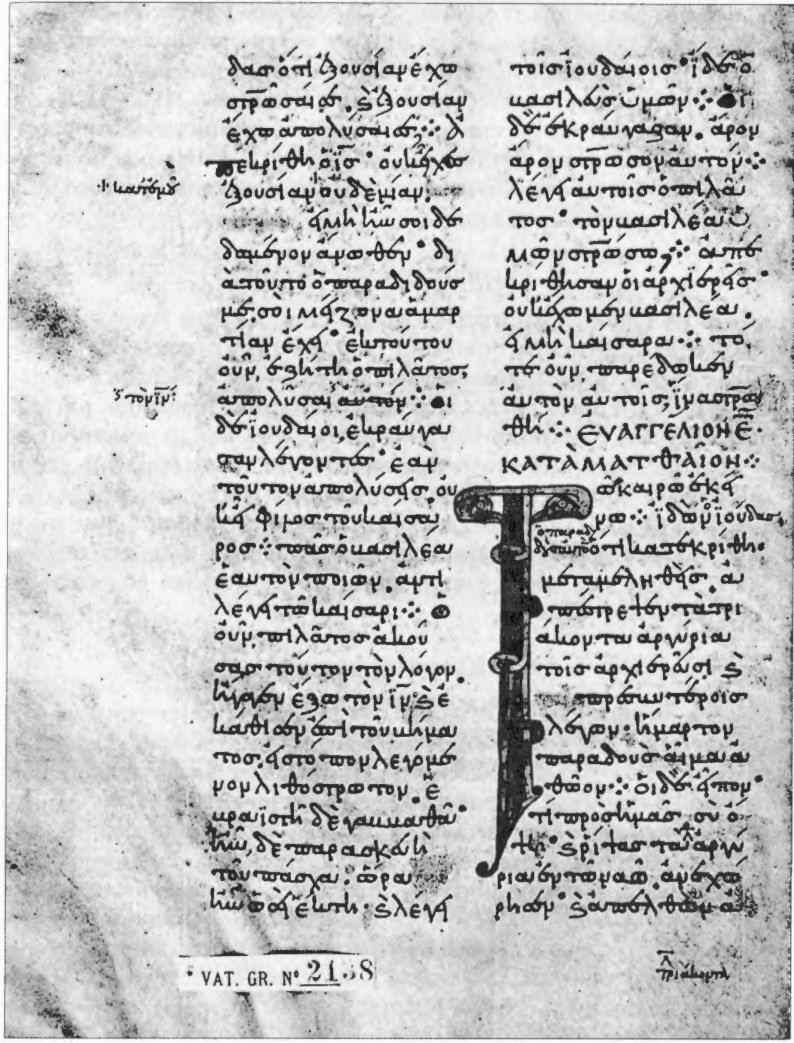 δασ ὅτι ἐξουσίαν ἔχω
στρῶσαί σε. καὶ ἐξουσίαν
ἔχω ἀπολῦσαί σε· ἀ
πεκρίθη ὁ ἰς· οὐκ ἔχεις
ἐξουσίαν οὐδεμίαν
κατ' ἐμοῦ
εἰ μὴ ἦν σοι δε
δομένον ἄνωθεν· δι
ὰ τοῦτο ὁ παραδιδούς
με σοι μείζονα ἁμαρ
τίαν ἔχει· ἐκ τούτου
οὖν, ἐζήτει ὁ πιλᾶτος,
ἀπολῦσαι αὐτόν· οἱ
τὸν ιν
δὲ ἰουδαῖοι, ἐκραύγα
σαν λέγοντες· ἐὰν
τοῦτον ἀπολύσῃς, οὐ
κ εἶ φίλος τοῦ καίσα
ρος· πᾶς ὁ βασιλέα
ἑαυτὸν ποιῶν, ἀντι
λέγει τῶ καίσαρι· ὁ
οὖν πιλᾶτος ἀκού
σας τοῦτον τὸν λόγον,
ἤγαγεν ἔξω τὸν ιν· καὶ ἐ
κάθισεν ἐπὶ τοῦ βήμα
τος, εἰς τόπον λεγόμε
νον λιθόστρωτον, ἑ
βραϊστὶ δὲ γαββαθᾶ·
ἦν δὲ παρασκευὴ
τοῦ πάσχα· ὥρα
ἦν ὡσεὶ ἕκτη· καὶ λέγει
τοῖς ἰουδαίοις· ἴδε ὁ
βασιλεὺς ὑμῶν· οἱ
δὲ ἐκραύγαζον, ἆρον
ἆρον στρωσον αὐτόν·
λέγει αὐτοῖς ὁ πιλᾶ
τος· τὸν βασιλέα ὑ
μῶν στρωσω; ἀπε
κρίθησαν οἱ ἀρχιερεῖς·
οὐκ ἔχομεν βασιλέα
εἰ μὴ καίσαρα· τό
τε οὖν παρέδωκεν
αὐτὸν αὐτοῖς, ἵνα στρω
θῇ· ΕΥΑΓΓΕΛΙΟΝ Ε·
ΚΑΤᾺ ΜΑΤΘΑῖΟΝ
Τῶ καιρῶ ἐκεί
νω· ἰδὼν ἰούδας,
ὁ παραδι
δοὺς αὐτὸν ὅτι κατεκρίθη·
μεταμεληθεὶς, ἀ
πέστρεψεν τὰ τρι
άκοντα ἀργύρια
τοῖς ἀρχιερεῦσι καὶ
πρεσβυτέροις
λέγων· ἥμαρτον
παραδοὺς αἷμα ἀ
θῶον· οἱ δὲ εἶπον·
τί πρὸς ἡμᾶς σὺ ὄ
ψῃ· καὶ ῥίψας τὰ ἀργύ
ρια ἐν τῶ ναῶ ἀνεχώ
ρησεν· καὶ ἀπελθὼν ἀ
τριάκοντα
VAT. GR. Nº 2138